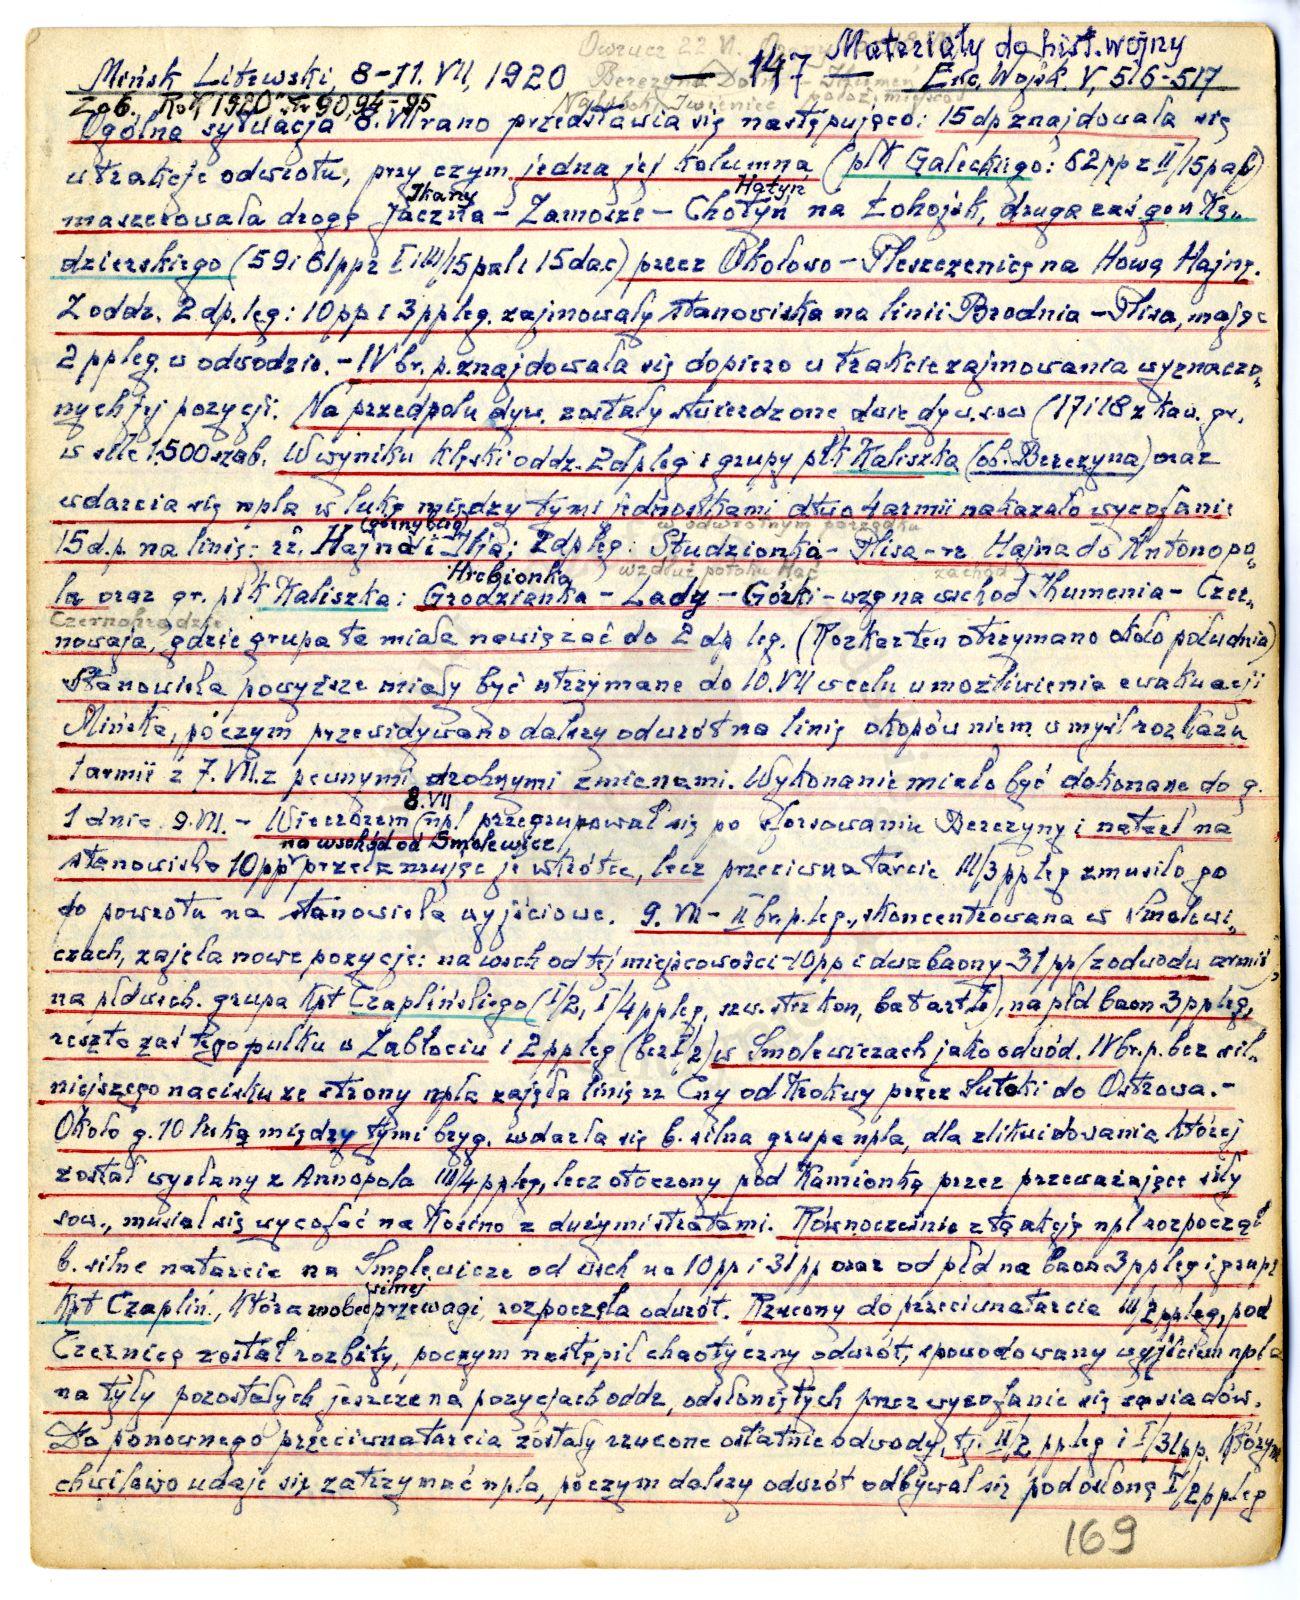 Owrucz 22 VI.
Materiały do hist. wojny
Mińsk Litewski, 8-11. VII, 1920 — 147 — Enc. Wojsk. V, 516-517
Berezyna Dolna - Ihumeń
Zob. Rok 1920 str 90, 94-95
Naliboki Iwieniec położ. miejscow
Ogólna sytuacja 8. VII rano przedstawia się następująco: 15 dp znajdowała się
w trakcie odwrotu, przy czym jedna jej kolumna (płk Gałeckiego: 62 pp z II/15 pap)
Ikany Hatyń
maszerowała drogą Jaczna - Zamosze - Chotyń na Łohojsk, druga zaś gen Kę-
dzierskiego (59 i 61 pp z I i III/15 pal i 15 dac) przez Okołowo - Pleszczenicę na Nową Hajnę.
Z oddz. 2 dp. leg: 10 pp i 3 pp leg. zajmowały stanowiska na linii Brodnia - Plisa, mając
2 pp leg. w odwodzie. - IV br. p. znajdowała się dopiero w trakcie zajmowania wyznaczo-
nych jej pozycji. Na przedpolu dyw. zostały stwierdzone dwie dyw. sow (17 i 18 z kaw. gr.
w sile 1.500 szab. W wyniku klęski oddz. 2 dp leg i grupy płk Kaliszka (ob. Berezyna) oraz
wdarcia się npla w lukę między tymi jednostkami dtwo 4 armii nakazało wycofanie
(górny bieg) w odwrotnym porządku
15 d.p. na linię: rz. Hajna i Ilja; 2 dp leg: Studzionka - Plisa - rz Hajna do Antonopo-
Hrebionka wzdłuż potoku Hać zachód
la oraz gr. płk Kaliszka: Grodzianka - Lady - Górki - wzg na wschód Ihumenia - Czer-
Czernohradzie
nowaja, gdzie grupa ta miała nawiązać do 2 dp leg. (Rozkaz ten otrzymano około południa)
Stanowiska powyższe miały być utrzymane do 10. VII w celu umożliwienia ewakuacji
Mińska, poczym przewidywano dalszy odwrót na linię okopów niem. w myśl rozkazu
1 armii z 7. VII. z pewnymi drobnymi zmianami. Wykonanie miało być dokonane do g.
8. VII
1 dnia 9. VII. - Wieczorem npl przegrupował się po sforsowaniu Berezyny i natarł na
na wschód od Smolewicz
stanowisko 10 pp przełamując je wkrótce, lecz przeciwnatarcie III/3 pp leg zmusiło go
do powrotu na stanowiska wyjściowe. 9. VII - II br. p. leg., skoncentrowana w Smolewi-
czach, zajęła nowe pozycje: na wsch od tej miejscowości - 10 pp i dwa baony 31 pp /z odwodu armii/,
na płd wsch. grupa kpt Czaplińskiego (I/2, I/4 pp leg, szw. strz kon, bat art l), na płd baon 3 pp leg,
reszta zaś tego pułku w Zabłociu i 2 pp leg (bez I/2) w Smolewiczach jako odwód. IV br. p. bez sil-
niejszego nacisku ze strony npla zajęła linię rz Cny od Krokwy przez Sutoki do Ostrowa. -
Około g. 10 luką między tymi bryg. wdarła się b. silna grupa npla, dla zlikwidowania której
został wysłany z Annopola III/4 pp leg, lecz otoczony pod Kamionką przez przeważające siły
sow., musiał się wycofać na Kosino z dużymi stratami. Równocześnie z tą akcją npl rozpoczął
b. silne natarcie na Smolewicze od wsch na 10 pp i 31 pp oraz od płd na baon 3 pp leg i grupę
silnej
kpt Czapliń., która wobec przewagi, rozpoczęła odwrót. Rzucony do przeciwnatarcia III/2 pp leg, pod
Czernicą został rozbity, poczym nastąpił chaotyczny odwrót, spowodowany wyjściem npla
na tyły pozostałych jeszcze na pozycjach oddz, odsłoniętych przez wycofanie się sąsiadów.
Do ponownego przeciwnatarcia zostały rzucone ostatnie odwody, tj. II/2 pp leg i I/31 pp. Którym
chwilowo udaje się zatrzymać npla, poczym dalszy odwrót odbywał się pod osłoną I/2 pp leg
169